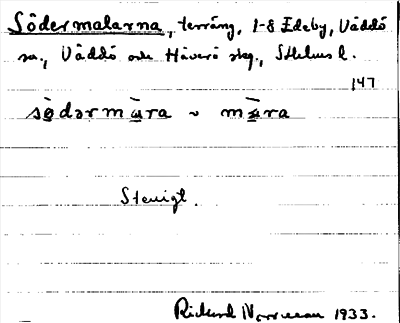 Södermalarna, terräng, 1-8 Edeby, Väddö
sn., Väddö och Häverö skg., Sthlms l.
147
sǜdərmàra ~ màra
Stenigt.
Rickard 1933.